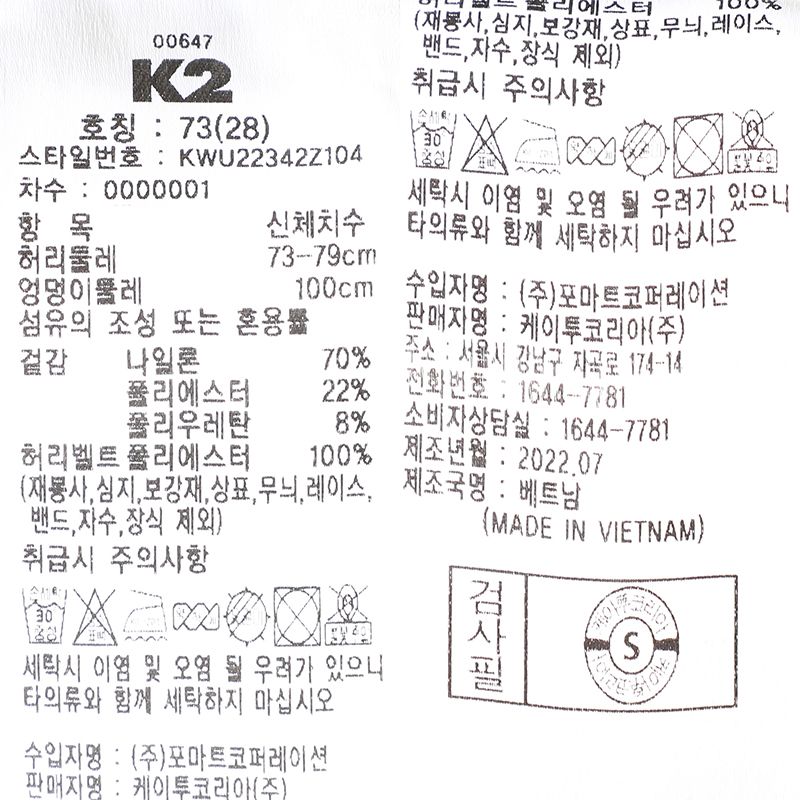 00647
K2
호칭 : 73(28)
스타일번호 : KWU22342Z104
차수 : 0000001
항 목 신체치수
허리둘레 73-79cm
엉덩이둘레 100cm
섬유의 조성 또는 혼용률
겉감 나일론 70%
폴리에스터 22%
폴리우레탄 8%
허리벨트 폴리에스터 100%
(재봉사,심지,보강재,상표,무늬,레이스,
밴드,자수,장식 제외)
취급시 주의사항
손세탁
30
중성
표백
세탁시 이염 및 오염 될 우려가 있으니
타의류와 함께 세탁하지 마십시오
수입자명 : (주)포마트코퍼레이션
판매자명 : 케이투코리아(주)
허리벨트 폴리에스터 100%
(재봉사,심지,보강재,상표,무늬,레이스,
밴드,자수,장식 제외)
취급시 주의사항
손세탁
30
중성
표백
세탁시 이염 및 오염 될 우려가 있으니
타의류와 함께 세탁하지 마십시오
수입자명 : (주)포마트코퍼레이션
판매자명 : 케이투코리아(주)
주소 : 서울시 강남구 자곡로 174-14
전화번호 : 1644-7781
소비자상담실 : 1644-7781
제조년월 : 2022.07
제조국명 : 베트남
(MADE IN VIETNAM)
검사필
케이투코리아
S